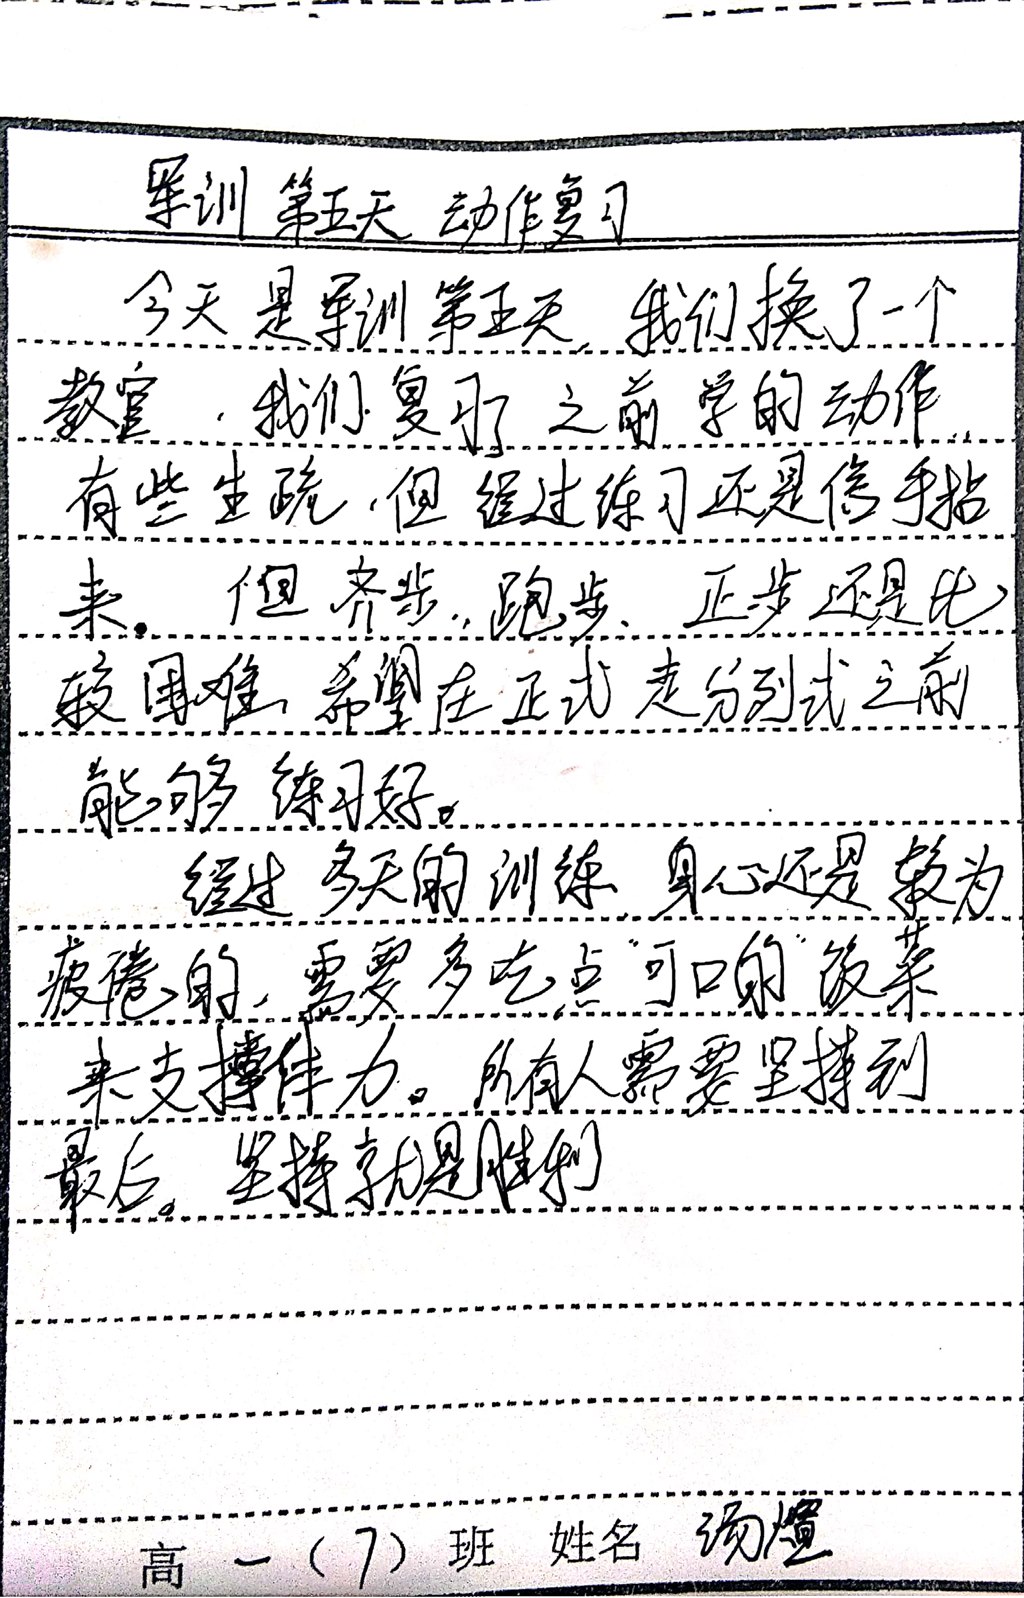 军训 第五天 动作复习
今天是军训第五天，我们换了一个
教官，我们复习了之前学的动作，
有些生疏，但经过练习还是信手拈
来。但齐步、跑步、正步还是比
较困难，希望在正式走分列式之前
能够练习好。
经过多天的训练，身心还是较为
疲倦的，需要多吃点“可口的”饭菜
来支撑体力。所有人需要坚持到
最后。坚持就是胜利
高一（7）班 姓名 汤煊